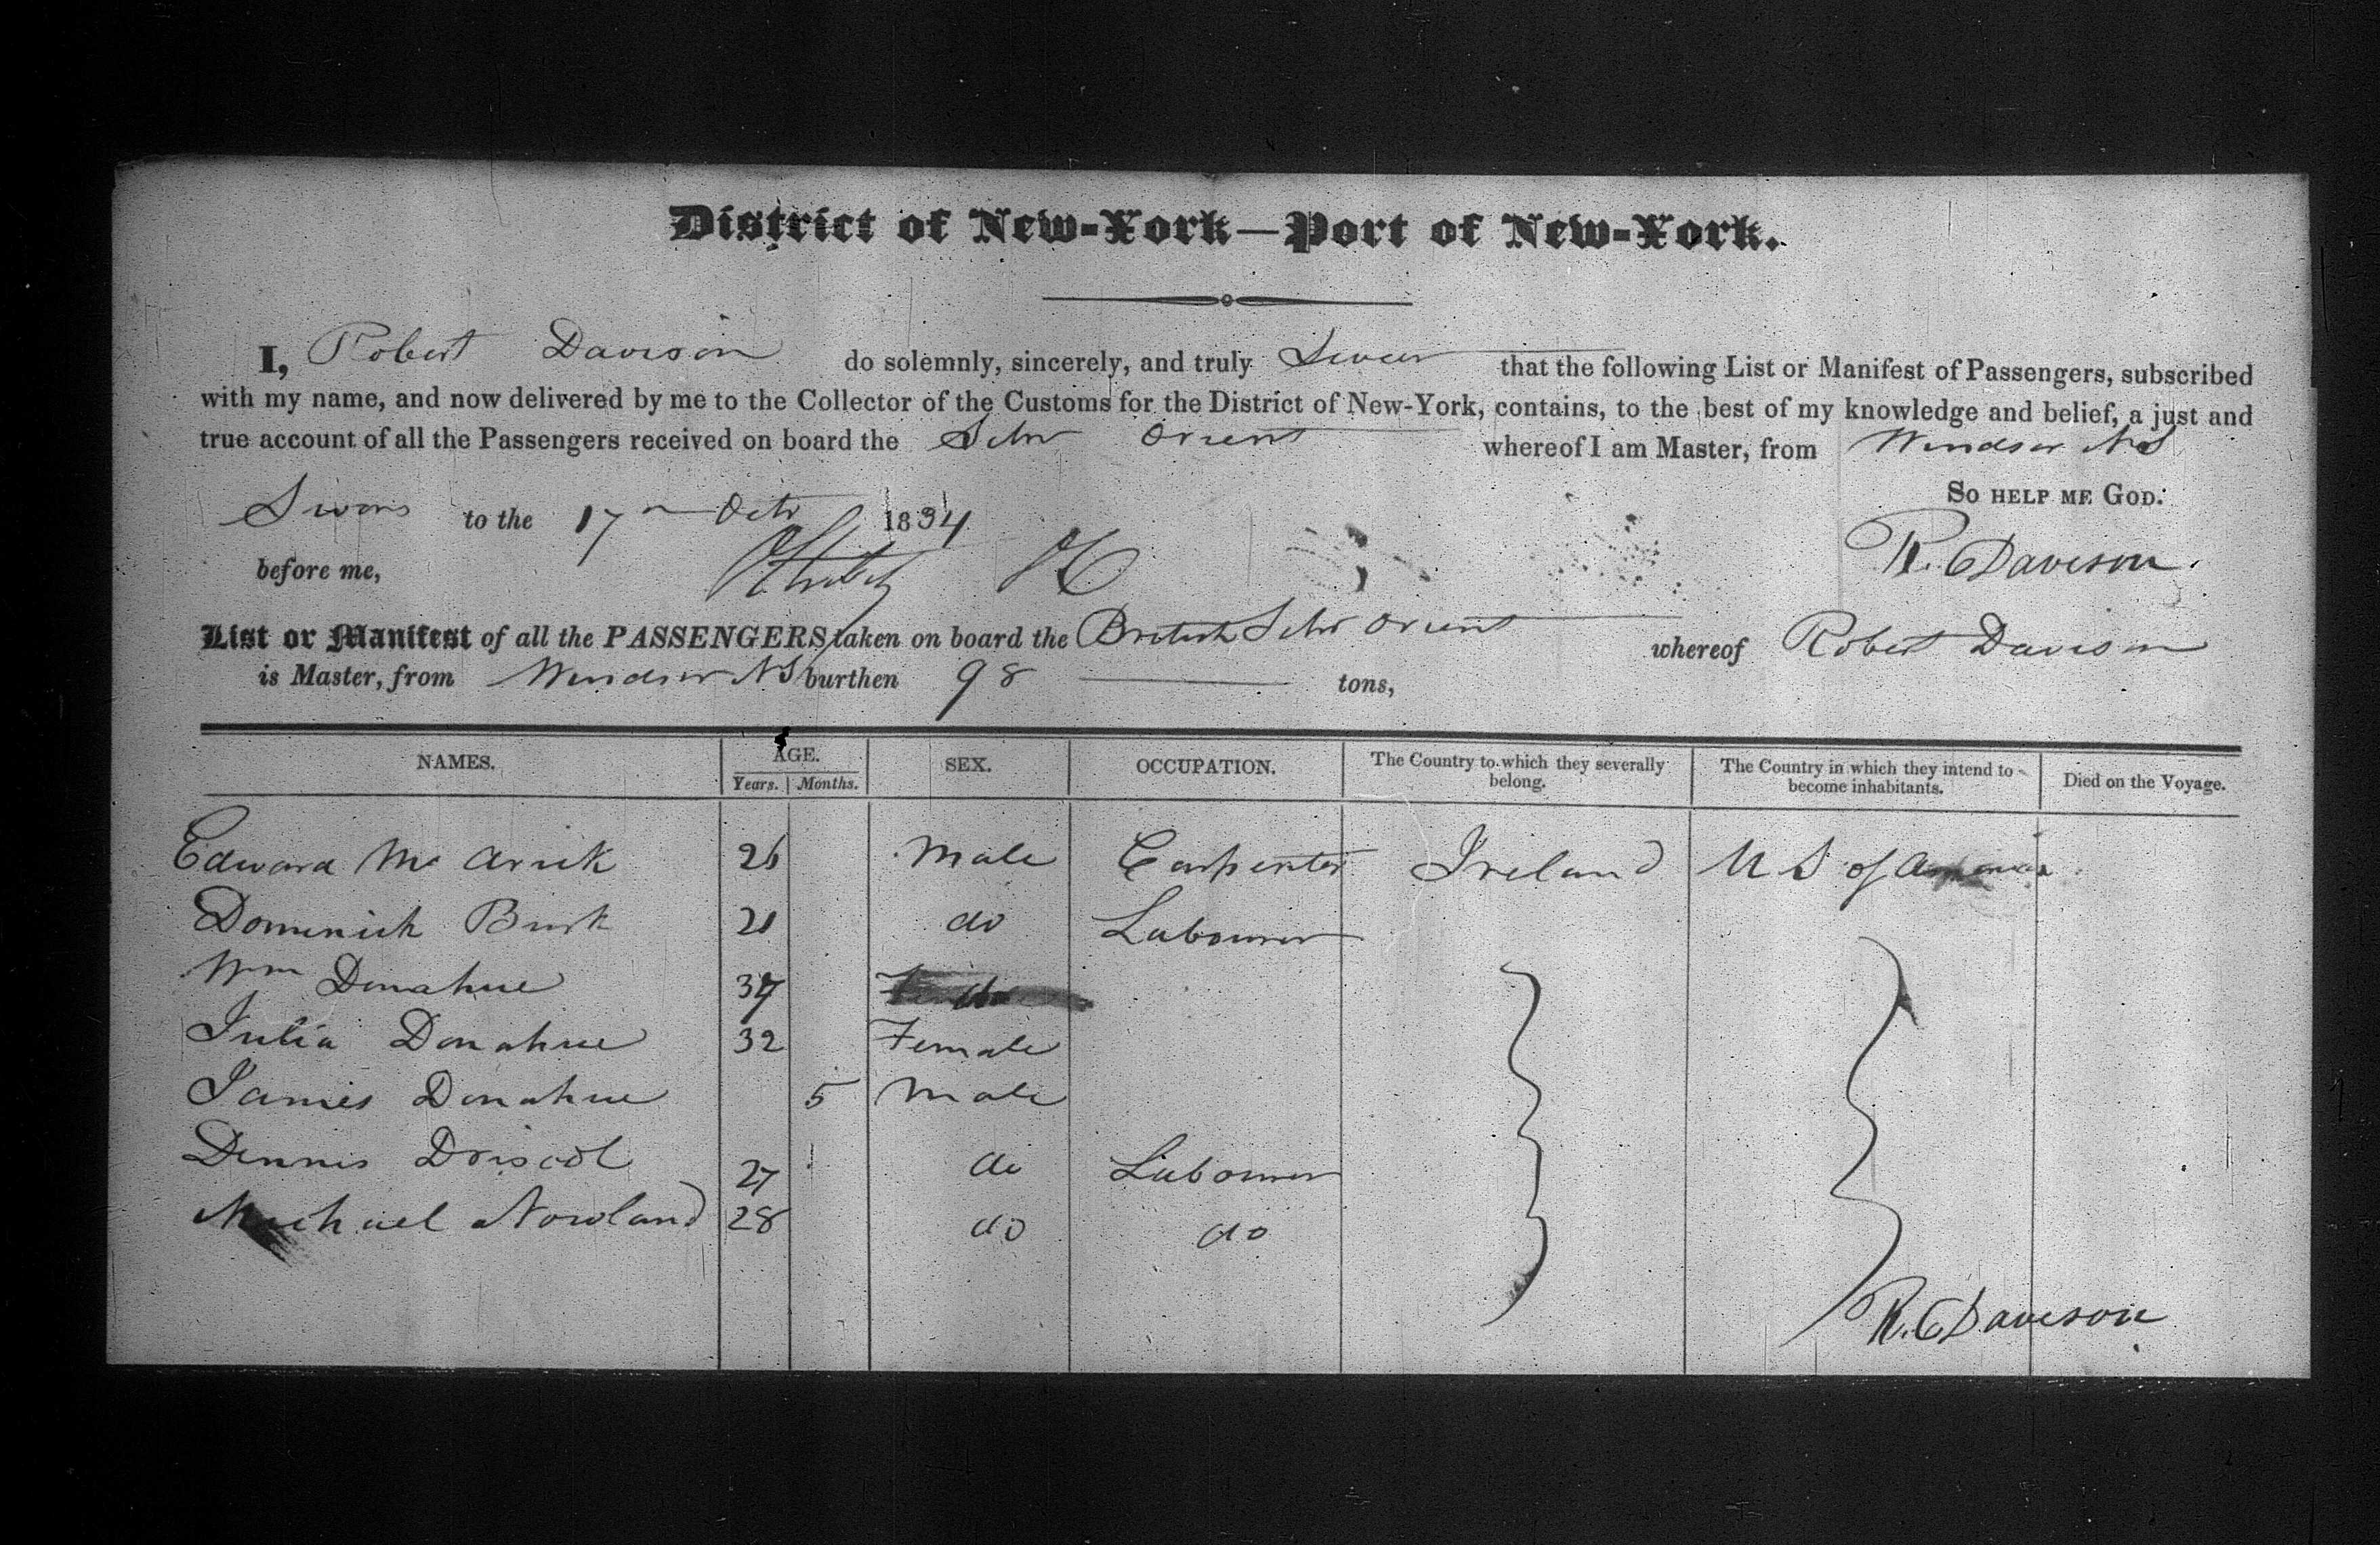 District of New-York—Port of New-York.
I, Robert Davison do solemnly, sincerely, and truly Swear that the following List or Manifest of Passengers, subscribed
with my name, and now delivered by me to the Collector of the Customs for the District of New-York, contains, to the best of my knowledge and belief, a just and
true account of all the Passengers received on board the Schr Orient whereof I am Master, from Windsor NS
So help me God.
Sworn to the 17th Octr 1834
before me, R. Davison.
List or Manifest of all the PASSENGERS taken on board the British Schr Orient whereof Robert Davison
is Master, from Windsor NS burthen 98 tons,
NAMES. AGE. SEX. OCCUPATION. The Country to which they severally belong. The Country in which they intend to become inhabitants. Died on the Voyage.
Years. Months.
Edward Mc 26 Male Carpenter Ireland U S of America
Dominick Burk 21 do Labourer
Wm Donahue do
Julia Donahue 32 Female
James Donahue 5 Male
Dennis Driscol 27 do Labourer
Michael Nowland 28 do do
R. Davison